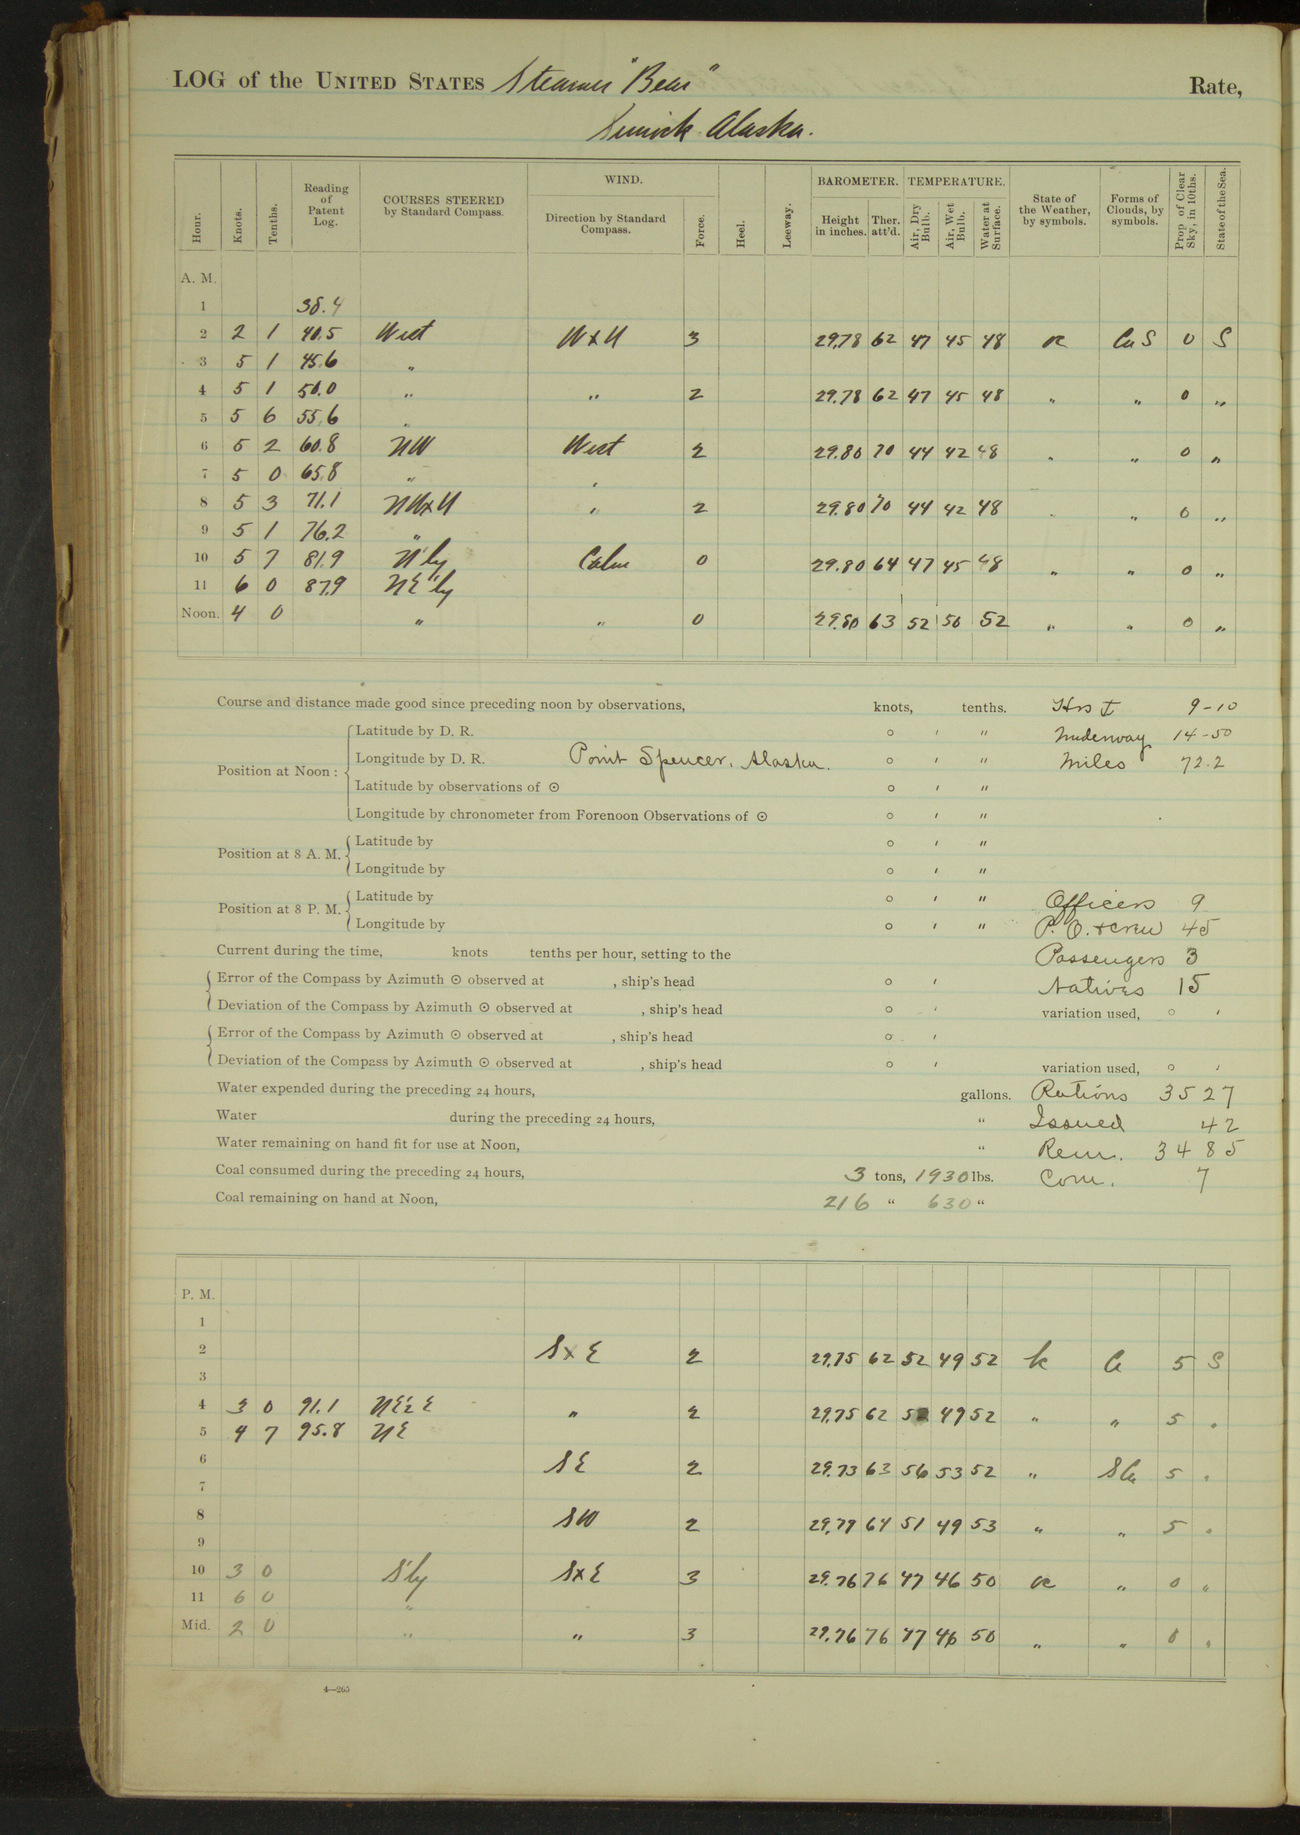 LOG of the UNITED STATES Steamer "Bear" Rate,
Alaska.
Hour. Knots. Tenths. Reading of Patent Log. COURSES STEERED by Standard Compass. WIND. Direction by Standard Compass. Force. Heel. Leeway. BAROMETER. Height in inches. Ther. att'd. TEMPERATURE. Air, Dry Bulb. Air, Wet Bulb. Water at Surface. State of the Weather, by symbols. Forms of Clouds, by symbols. Prop. of Clear Sky, in 10ths. State of the Sea.
A. M.
1 38.4
2 2 1 40.5 West WxN 3 29.78 62 47 45 48 oc CuS 0 S
3 5 1 45.6 "
4 5 1 50.0 " " 2 29.78 62 47 45 48 " " 0 "
5 5 6 55.6 "
6 5 2 60.8 NW West 2 29.80 70 44 42 48 " " 0 "
7 5 0 65.8 " "
8 5 3 71.1 NWxN " 2 29.80 70 44 42 48 " " 0 "
9 5 1 76.2 "
10 5 7 81.9 N'ly Calm 0 29.80 64 47 45 48 " " 0 "
11 6 0 87.9 NE'ly
Noon. 4 0 " " 0 29.80 63 52 50 52 " " 0 "
Course and distance made good since preceding noon by observations, knots, tenths. Hrs 9-10
Position at Noon: Latitude by D. R. ° ' " Underway 14-50
Longitude by D. R. Point Spencer, Alaska. ° ' " Miles 72.2
Latitude by observations of ☉ ° ' "
Longitude by chronometer from Forenoon Observations of ☉ ° ' "
Position at 8 A. M. Latitude by ° ' "
Longitude by ° ' "
Position at 8 P. M. Latitude by ° ' " Officers 9
Longitude by ° ' " P. O. & crew 45
Current during the time, knots tenths per hour, setting to the Passengers 3
Error of the Compass by Azimuth ☉ observed at , ship's head ° ' Natives 15
Deviation of the Compass by Azimuth ☉ observed at , ship's head ° ' variation used, ° '
Error of the Compass by Azimuth ☉ observed at , ship's head ° '
Deviation of the Compass by Azimuth ☉ observed at , ship's head ° ' variation used, ° '
Water expended during the preceding 24 hours, gallons. Rations 3527
Water during the preceding 24 hours, " Issued 42
Water remaining on hand fit for use at Noon, " Rem. 3485
Coal consumed during the preceding 24 hours, 3 tons, 1930 lbs. Com. 7
Coal remaining on hand at Noon, 216 " 630 "
P. M.
1
2 SxE 2 29.75 62 52 49 52 bc Cu 5 S
3
4 3 0 91.1 NE½E " 2 29.75 62 52 49 52 " " 5 "
5 4 7 95.8 NE
6 SE 2 29.73 63 56 53 52 " SCu 5 "
7
8 SW 2 29.79 64 51 49 53 " " 5 "
9
10 3 0 S'ly SxE 3 29.76 76 47 46 50 oc " 0 "
11 6 0 "
Mid. 2 0 " " 3 29.76 76 47 46 50 " " 0 "
4—265